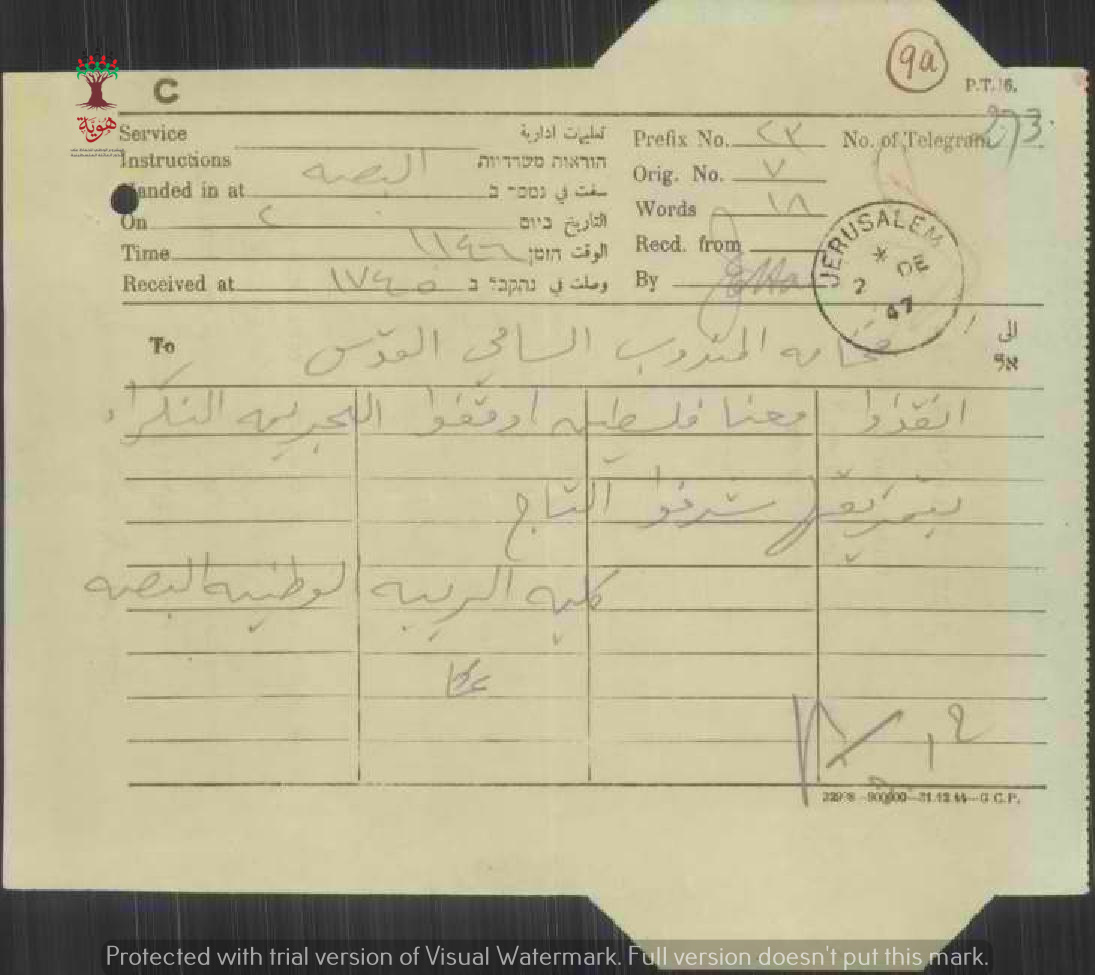 9a
P.T.16.
C
هوية
Service تعليمات ادارية
Instructions הוראות משרדיות
البصه
Handed in at سلمت في נמסר ב
On ٢ التاريخ ביום
Time ١١٤٦ الوقت הזמן
Received at ١٧٤٥ وصلت في נתקבל ב
Prefix No. ٢٣ No. of Telegram 273
Orig. No. ٧
Words ١٨
Recd. from
By
JERUSALEM
2 DE
47
To فخامه المندوب السامي القدس الى
אל
انقذوا معنا فلسطين اوقفوا التجربه النكراء
بتمزيقها شرفوا التاج
كليه التربيه الوطنيه البصه
عكا
22978—800,000—31.12.44—G.C.P.
Protected with trial version of Visual Watermark. Full version doesn't put this mark.